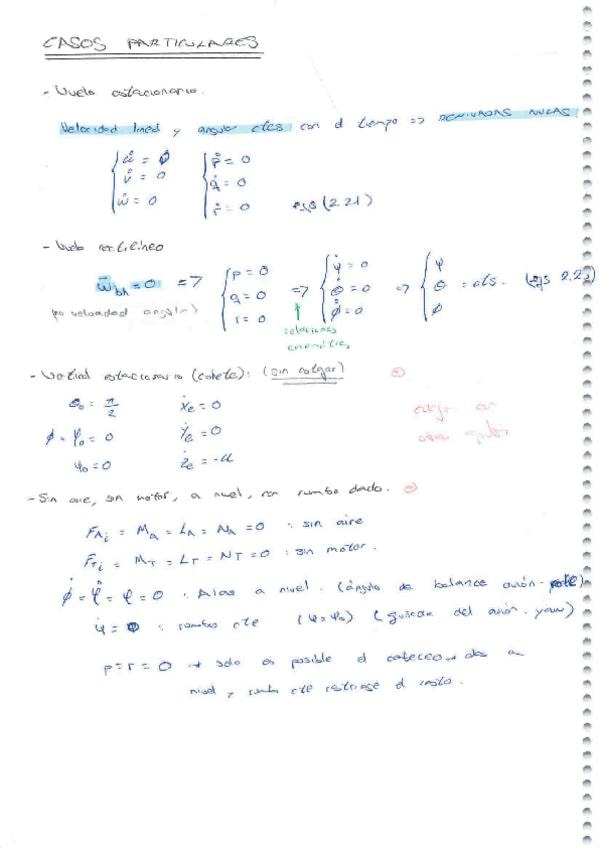 CASOS PARTICULARES
- Vuelo estacionario.
Velocidad lineal y angular ctes con el tiempo => DERIVADAS NULAS
u̇ = 0 ṗ = 0
v̇ = 0 q̇ = 0
ẇ = 0 ṙ = 0 eqs (2.21)
- Vuelo rectilíneo
p = 0 ψ̇ = 0 ψ
ω̄bh = 0 => q = 0 => θ̇ = 0 => θ = cts. (eqs 2.22)
(no velocidad angular) r = 0 ϕ̇ = 0 ϕ
relaciones
cinemáticas
- Vertical estacionario (cohete): (sin colgar)
θ₀ = π/2 ẋe = 0
ϕ = φ₀ = 0 ẏe = 0
ψ₀ = 0 że = -u
- Sin aire, sin motor, a nivel, con rumbo dado.
FAi = MA = LA = NA = 0 : sin aire
FTi = MT = LT = NT = 0 : sin motor.
ϕ̇ = φ̇ = φ = 0 : Alas a nivel. (ángulo de balance avión.
ψ̇ = 0 : rumbo cte (ψ = ψ₀) (guiñada del avión. yaw)
p = r = 0 → solo es posible el cabeceo, alas a
nivel y rumbo cte restringe el resto.